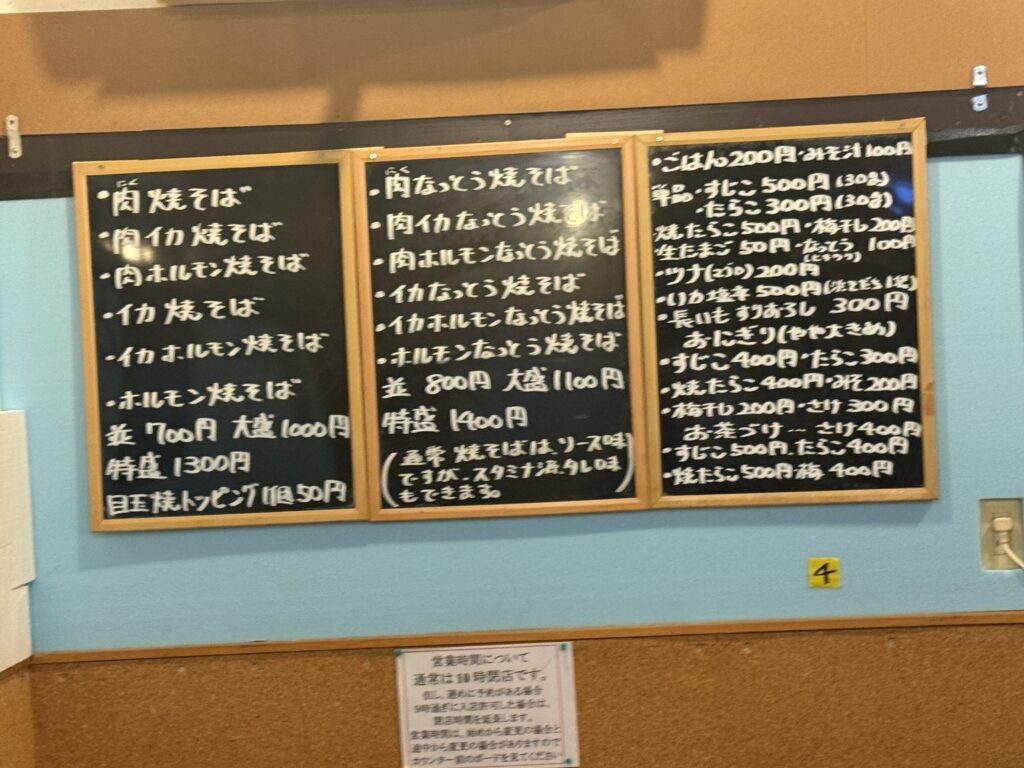 にく
・肉焼そば
・肉イカ焼そば
・肉ホルモン焼そば
・イカ焼そば
・イカホルモン焼そば
・ホルモン焼そば
並 700円 大盛1000円
特盛 1300円
目玉焼トッピング1個50円
にく
・肉なっとう焼そば
・肉イカなっとう焼そば
・肉ホルモンなっとう焼そば
・イカなっとう焼そば
・イカホルモンなっとう焼そば
・ホルモンなっとう焼そば
並 800円 大盛1100円
特盛 1400円
(通常焼そばは、ソース味
ですが、スタミナ源タレ味
もできます。)
・ごはん200円・みそ汁100円
単品・すじこ500円(30g)
・たらこ300円(30g)
焼たらこ500円・梅干し200円
生たまご50円・なっとう100円
(ヒキワリ)
・ツナ(マヨ)200円
・いか塩辛500円
・長いもすりおろし 300円
おにぎり(やや大きめ)
・すじこ400円・たらこ300円
・焼たらこ400円・みそ200円
・梅干し200円・さけ300円
お茶づけ…さけ400円
・すじこ500円、たらこ400円
・焼たらこ500円・梅400円
4
営業時間について
通常は10時閉店です。
但し、遅めに予約がある場合
9時過ぎに入店許可した場合は、
閉店時間を延長します。
営業時間は、始めから変更の場合と
途中から変更の場合がありますので
カウンター前のボードを見てください